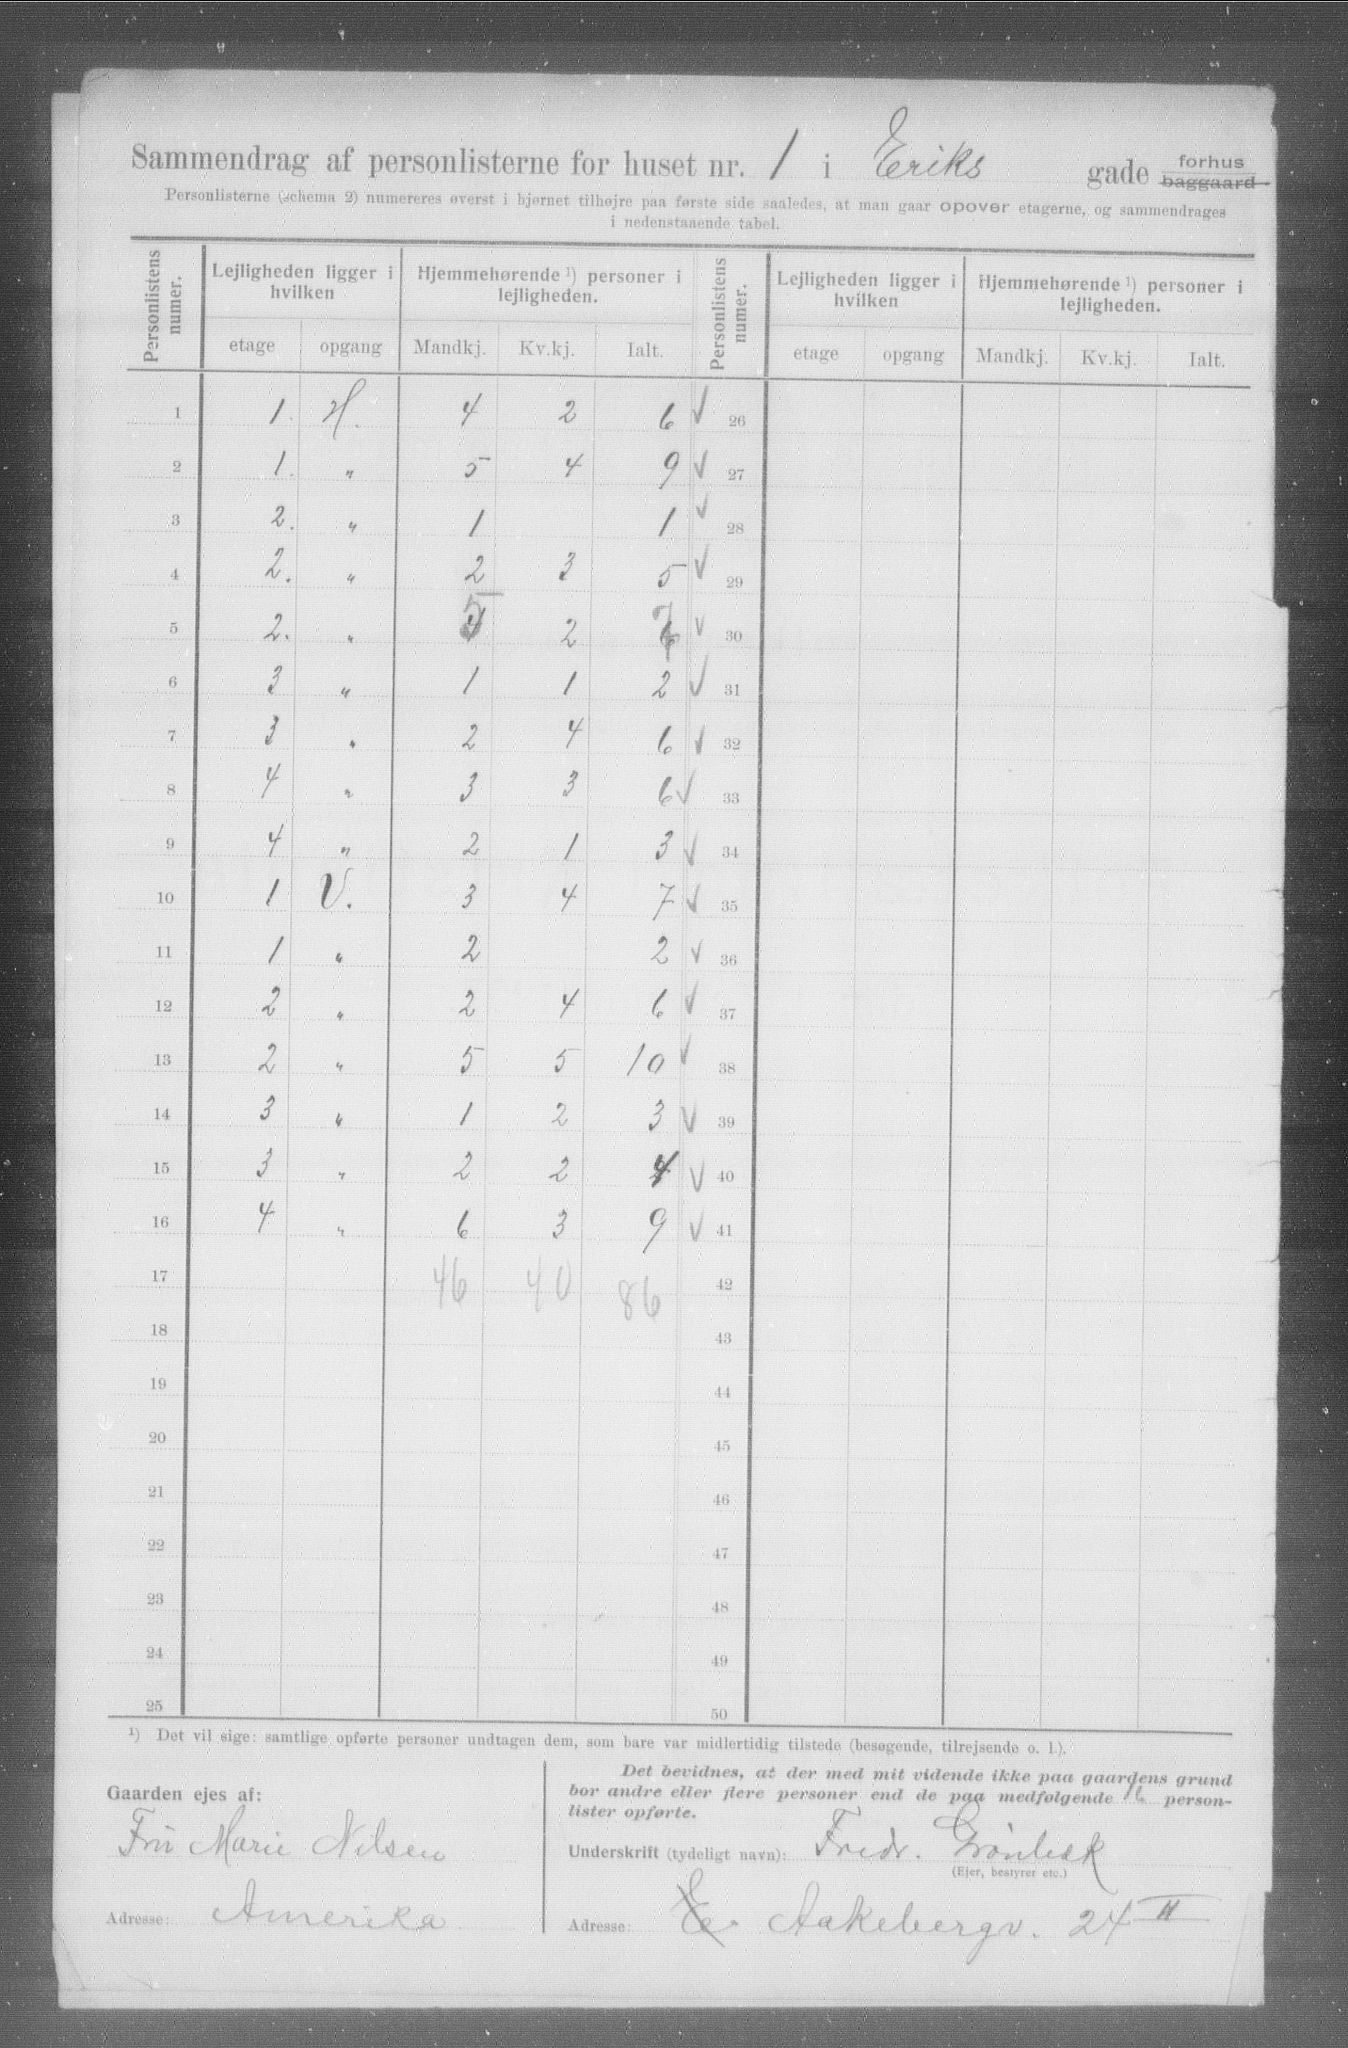 Sammendrag af personlisterne for huset nr. 1 i Eriks gade forhus baggaard
Personlisterne (schema 2) numereres øverst i hjørnet tilhøjre paa første side saaledes, at man gaar opover etagerne, og sammendrages
i nedenstaaende tabel.
Personlistens numer. Lejligheden ligger i hvilken Hjemmehørende ¹) personer i lejligheden. Personlistens numer. Lejligheden ligger i hvilken Hjemmehørende ¹) personer i lejligheden.
etage opgang Mandkj. Kv.kj. Ialt. etage opgang Mandkj. Kv.kj. Ialt.
1 1. H. 4 2 6 ✓ 26
2 1. " 5 4 9 ✓ 27
3 2. " 1 1 ✓ 28
4 2. " 2 3 5 ✓ 29
5 2. " 5 2 7 ✓ 30
6 3 " 1 1 2 ✓ 31
7 3 " 2 4 6 ✓ 32
8 4 " 3 3 6 ✓ 33
9 4 " 2 1 3 ✓ 34
10 1 V. 3 4 7 ✓ 35
11 1 " 2 2 ✓ 36
12 2 " 2 4 6 ✓ 37
13 2 " 5 5 10 ✓ 38
14 3 " 1 2 3 ✓ 39
15 3 " 2 2 4 ✓ 40
16 4 " 6 3 9 ✓ 41
17 46 40 86 42
18 43
19 44
20 45
21 46
22 47
23 48
24 49
25 50
¹) Det vil sige: samtlige opførte personer undtagen dem, som bare var midlertidig tilstede (besøgende, tilrejsende o. l.).
Gaarden ejes af:
Fru Marie Nilsen
Adresse: Amerika
Det bevidnes, at der med mit vidende ikke paa gaardens grund
bor andre eller flere personer end de paa medfølgende 16 person-
lister opførte.
Underskrift (tydeligt navn): Fredr. Grönbeck
(Ejer, bestyrer etc.)
Adresse: Aakebergv. 24 II